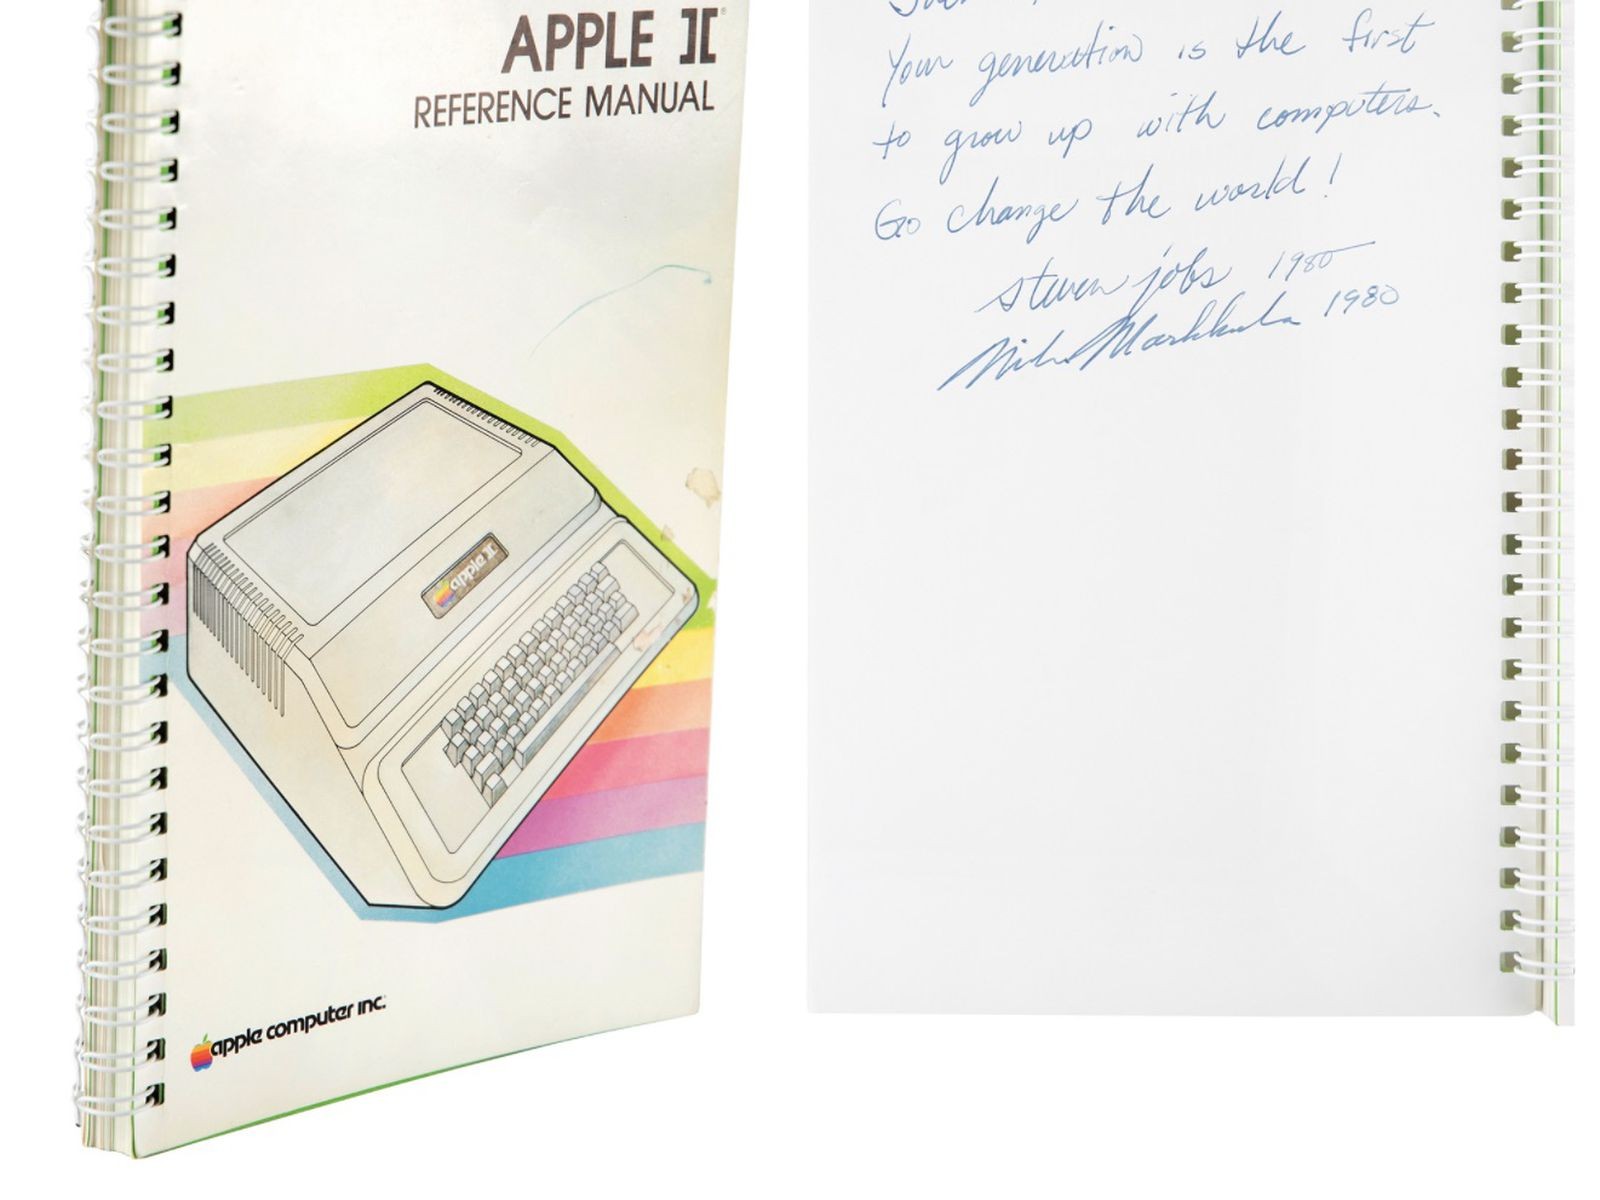 APPLE ][
REFERENCE MANUAL
apple ][
apple computer inc.
Your generation is the first
to grow up with computers.
Go change the world!
steven jobs 1980
Mike Markkula 1980